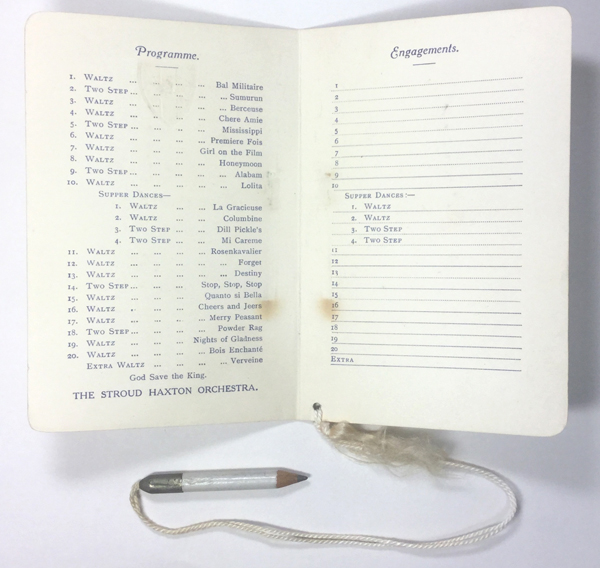 Programme.
1. Waltz ... ... ... ... Bal Militaire
2. Two Step ... ... ... ... ... Sumurun
3. Waltz ... ... ... ... ... Berceuse
4. Waltz ... ... ... ... Chere Amie
5. Two Step ... ... ... ... Mississippi
6. Waltz ... ... ... ... Premiere Fois
7. Waltz ... ... ... Girl on the Film
8. Waltz ... ... ... ... Honeymoon
9. Two Step ... ... ... ... ... Alabam
10. Waltz ... ... ... ... ... Lolita
Supper Dances—
1. Waltz ... ... La Gracieuse
2. Waltz ... ... ... Columbine
3. Two Step ... ... Dill Pickle's
4. Two Step ... ... Mi Careme
11. Waltz ... ... ... ... Rosenkavalier
12. Waltz ... ... ... ... ... Forget
13. Waltz ... ... ... ... ... Destiny
14. Two Step ... ... ... Stop, Stop, Stop
15. Waltz ... ... ... Quanto si Bella
16. Waltz . ... ... ... Cheers and Jeers
17. Waltz ... ... ... ... Merry Peasant
18. Two Step ... ... ... ... Powder Rag
19. Waltz ... ... ... Nights of Gladness
20. Waltz ... ... ... ... Bois Enchanté
Extra Waltz ... ... ... ... Verveine
God Save the King.
THE STROUD HAXTON ORCHESTRA.
Engagements.
1
2
3
4
5
6
7
8
9
10
Supper Dances:—
1. Waltz
2. Waltz
3. Two Step
4. Two Step
11
12
13
14
15
16
17
18
19
20
Extra